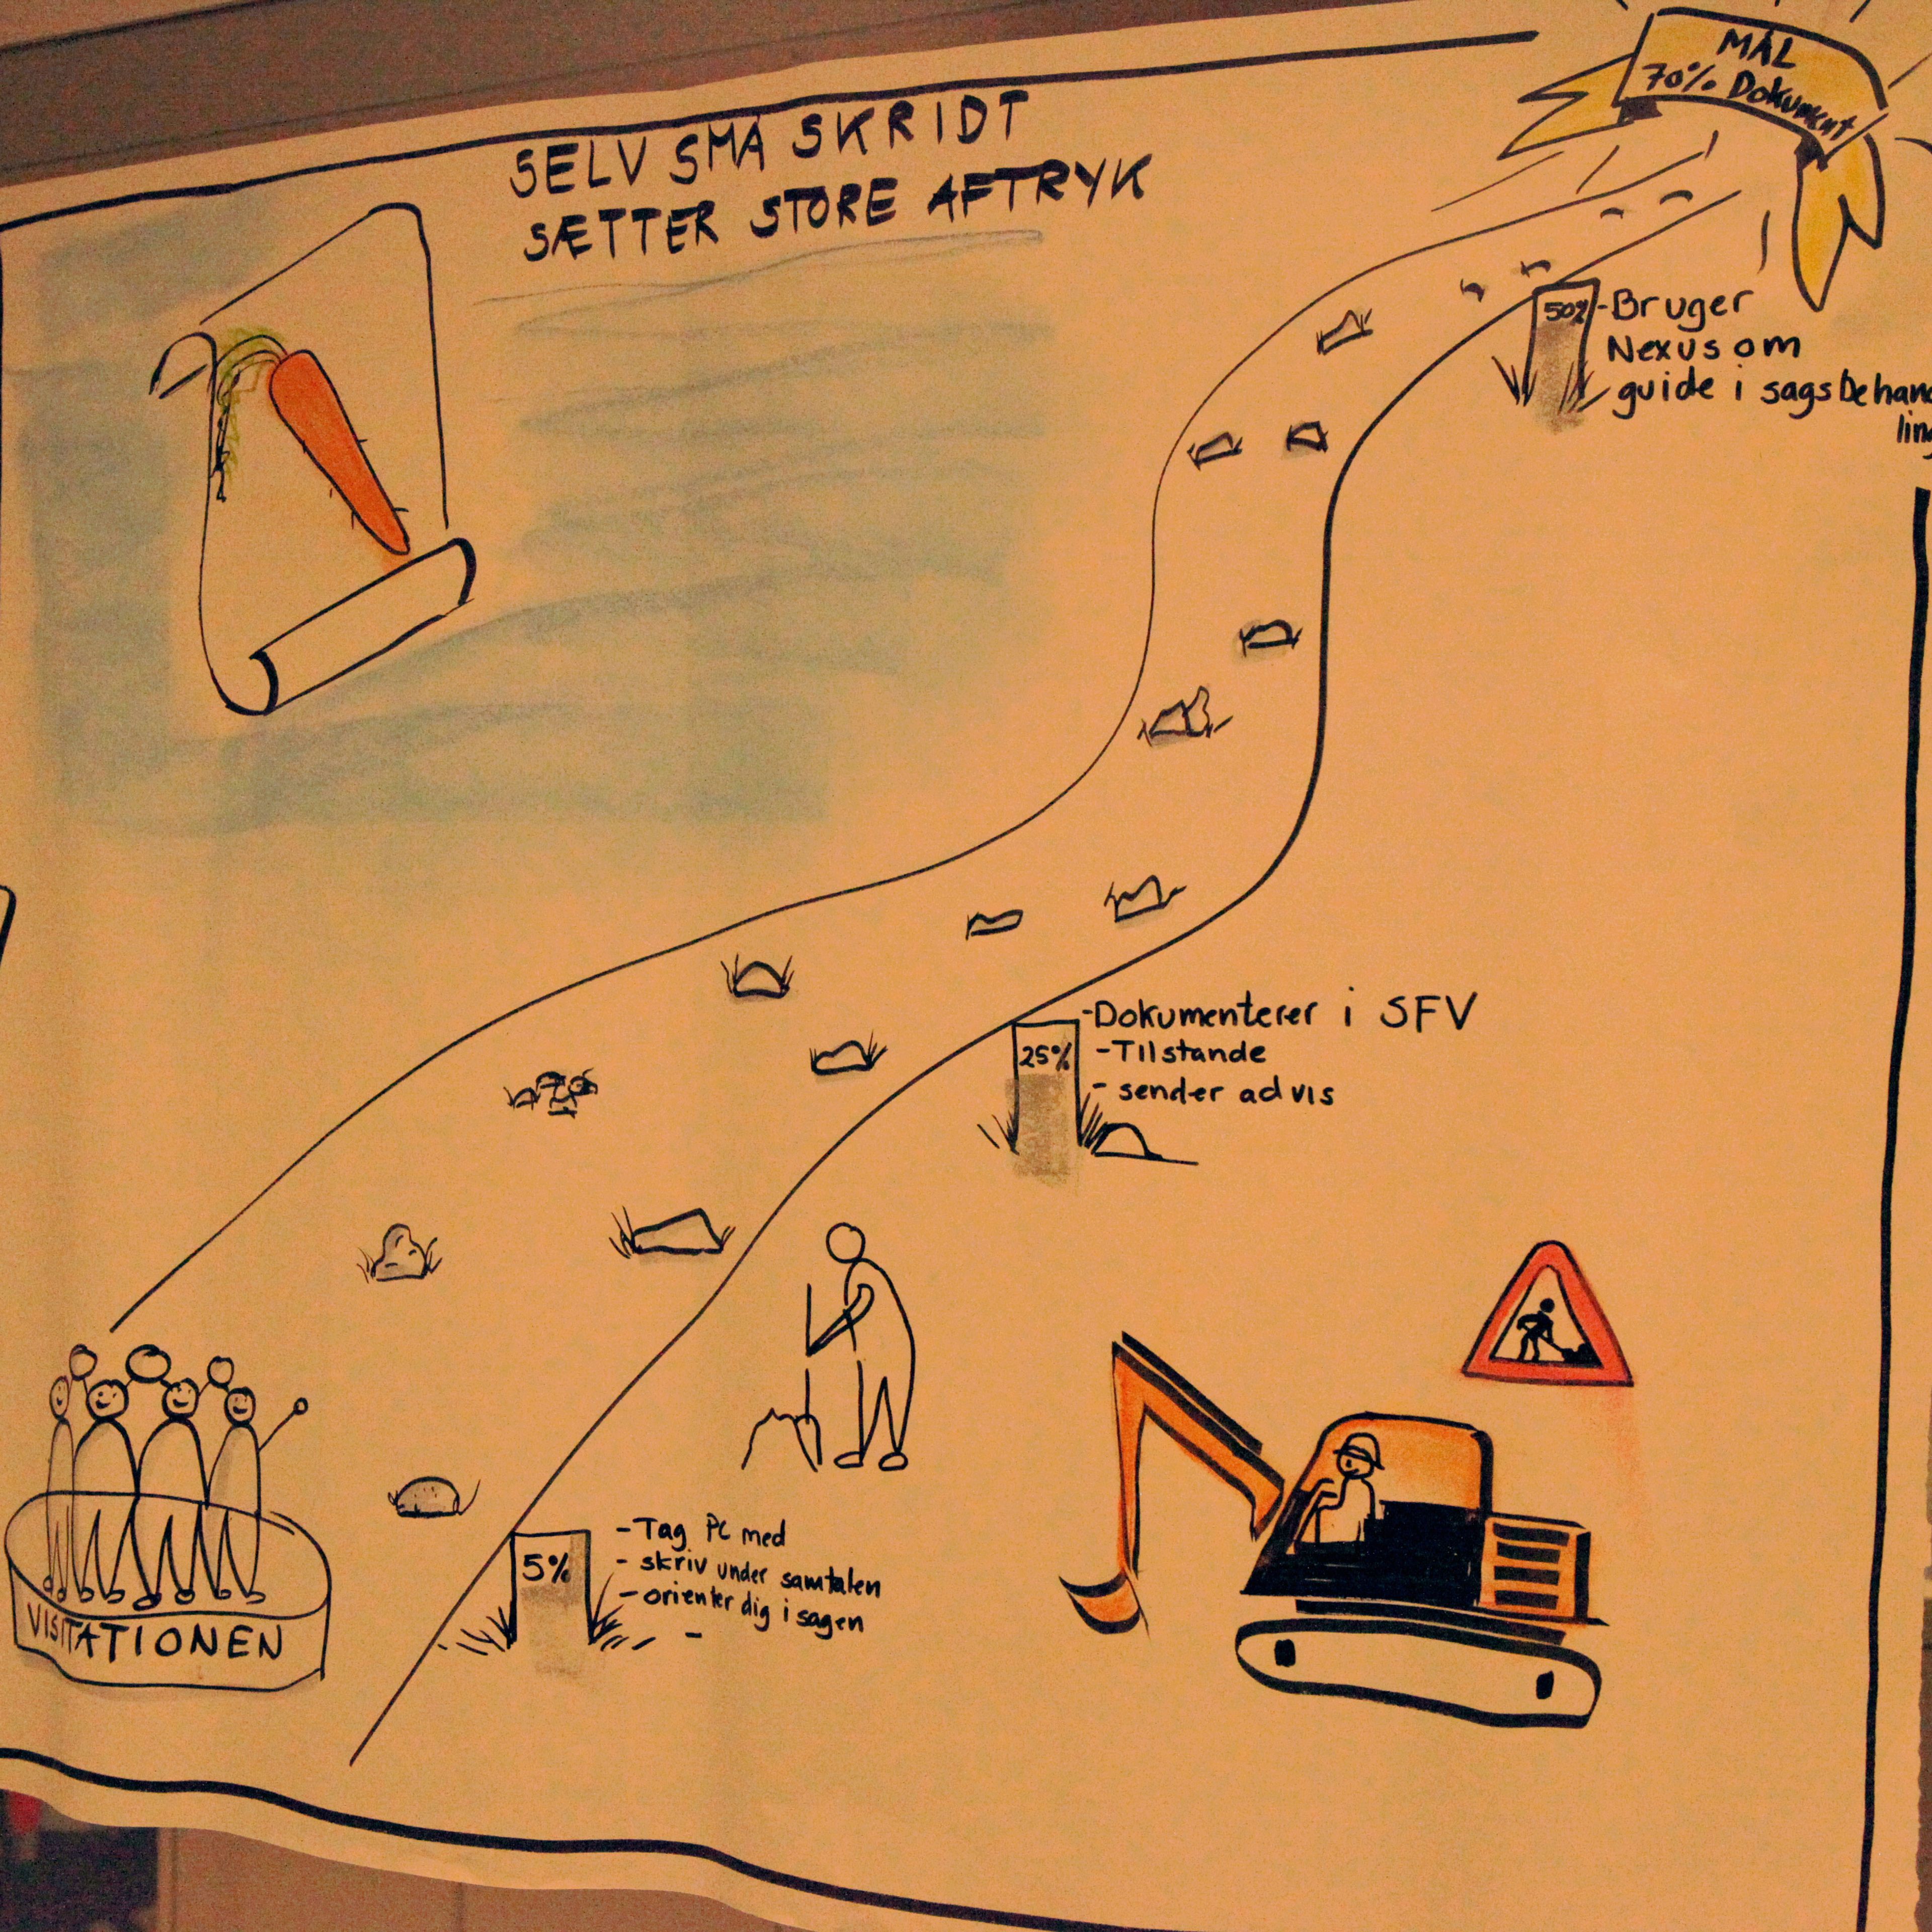 MÅL
70% Dokument
SELV SMÅ SKRIDT
SÆTTER STORE AFTRYK
50%
-Bruger
Nexus om
guide i sagsbehand
ling
-Dokumenterer i SFV
25%
-Tilstande
- sender advis
5%
- Tag PC med
- skriv under samtalen
- orienter dig i sagen
-
VISITATIONEN